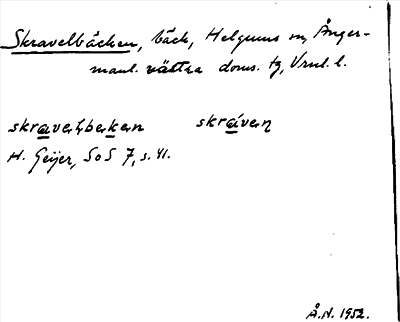 Skravelbäcken, bäck, Helgums sn, Ånger-
manl. västra doms. tg, Vrnl. l.
skravelbeken skráven
H. Geijer, SoS 7, s. 41.
Å.N. 1952.